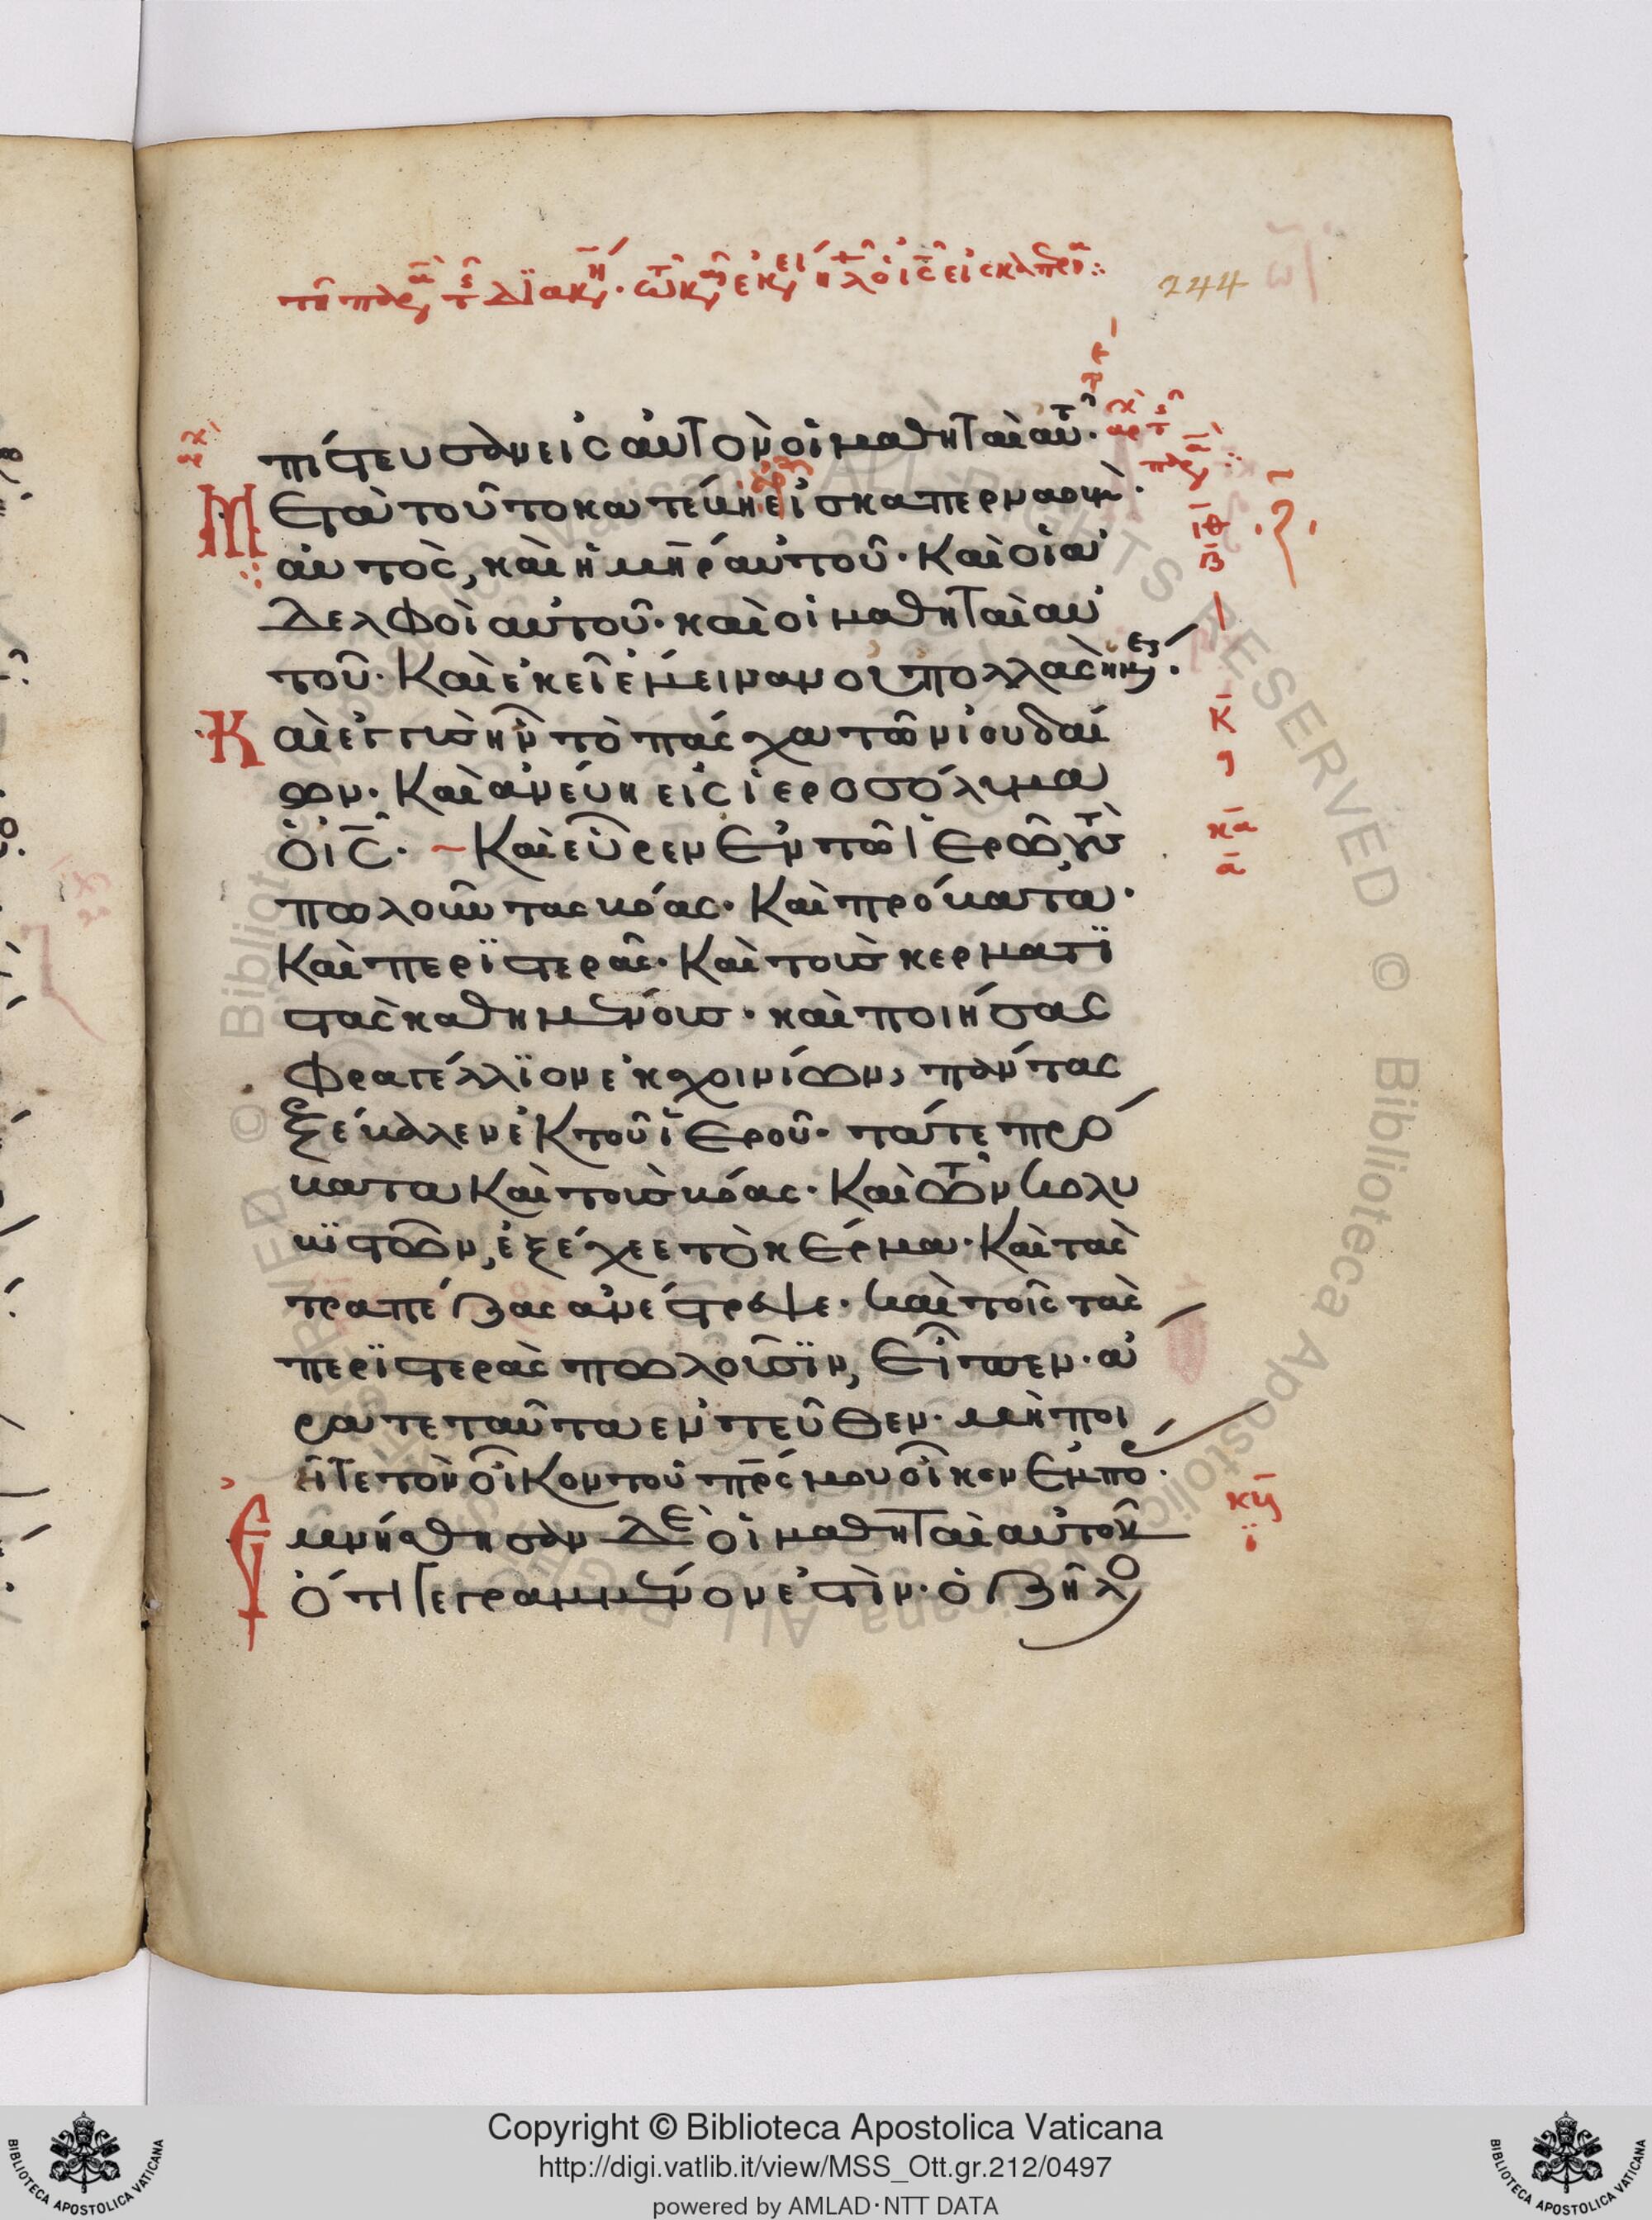 τῆ παρ τ διακ. τῷ κ ἐκ ἦλθ ὁ ις εἰς καπερ
244
πίστευσαν εἰς αὐτὸν οἱ μαθηταὶ αὐτ.
Μετὰ τοῦτο κατέβη εἰς καπερναουμ.
αὐτὸς, καὶ ἡ μηρ αὐτοῦ. Καὶ οἱ ἀ
δελφοὶ αὐτοῦ. καὶ οἱ μαθηταὶ αὐ
τοῦ. Καὶ ἐκεῖ ἔμειναν οὐ πολλὰς ἡμέ.
Καὶ ἐγγὺς ἦν τὸ πάσχα τῶν ἰουδαί
ων. Καὶ ἀνέβη εἰς ἱεροσόλυμα
ὁ ις. ~ Καὶ εὗρεν ἐν τῶ ἱερῶ τοὺς
πωλοῦντας βόας. Καὶ πρόβατα.
Καὶ περϊστερὰς. Καὶ τοὺς κερματϊ
στὰς καθημένους. καὶ ποιήσας
φραγέλλϊον ἐκ σχοινίων, πάντας
ἐξέβαλεν ἐκ τοῦ ἱεροῦ. τά τε πρό
βατα καὶ τοὺς βόας. Καὶ τῶν κολυ
βϊστῶν, ἐξέχεε τὸ κέρμα. Καὶ τὰς
τραπέζας ἀνέστρεψε. καὶ τοῖς τὰς
περϊστερὰς πωλοῦσϊν, εἶπεν. ἄ
ρατε ταῦτα ἐντεῦθεν. μὴ ποι
εῖτε τὸν οἶκον τοῦ πρς μου οἶκον ἐμπο.
Ἐμνήσθησαν δὲ οἱ μαθηταὶ αὐτοῦ
ὅτι γεγραμμένον ἐστὶν. ὁ ζῆλο
ιθ
β
κ
κα
α
κβ
ι
Copyright © Biblioteca Apostolica Vaticana
http://digi.vatlib.it/view/MSS_Ott.gr.212/0497
powered by AMLAD·NTT DATA
BIBLIOTECA APOSTOLICA VATICANA
BIBLIOTECA APOSTOLICA VATICANA